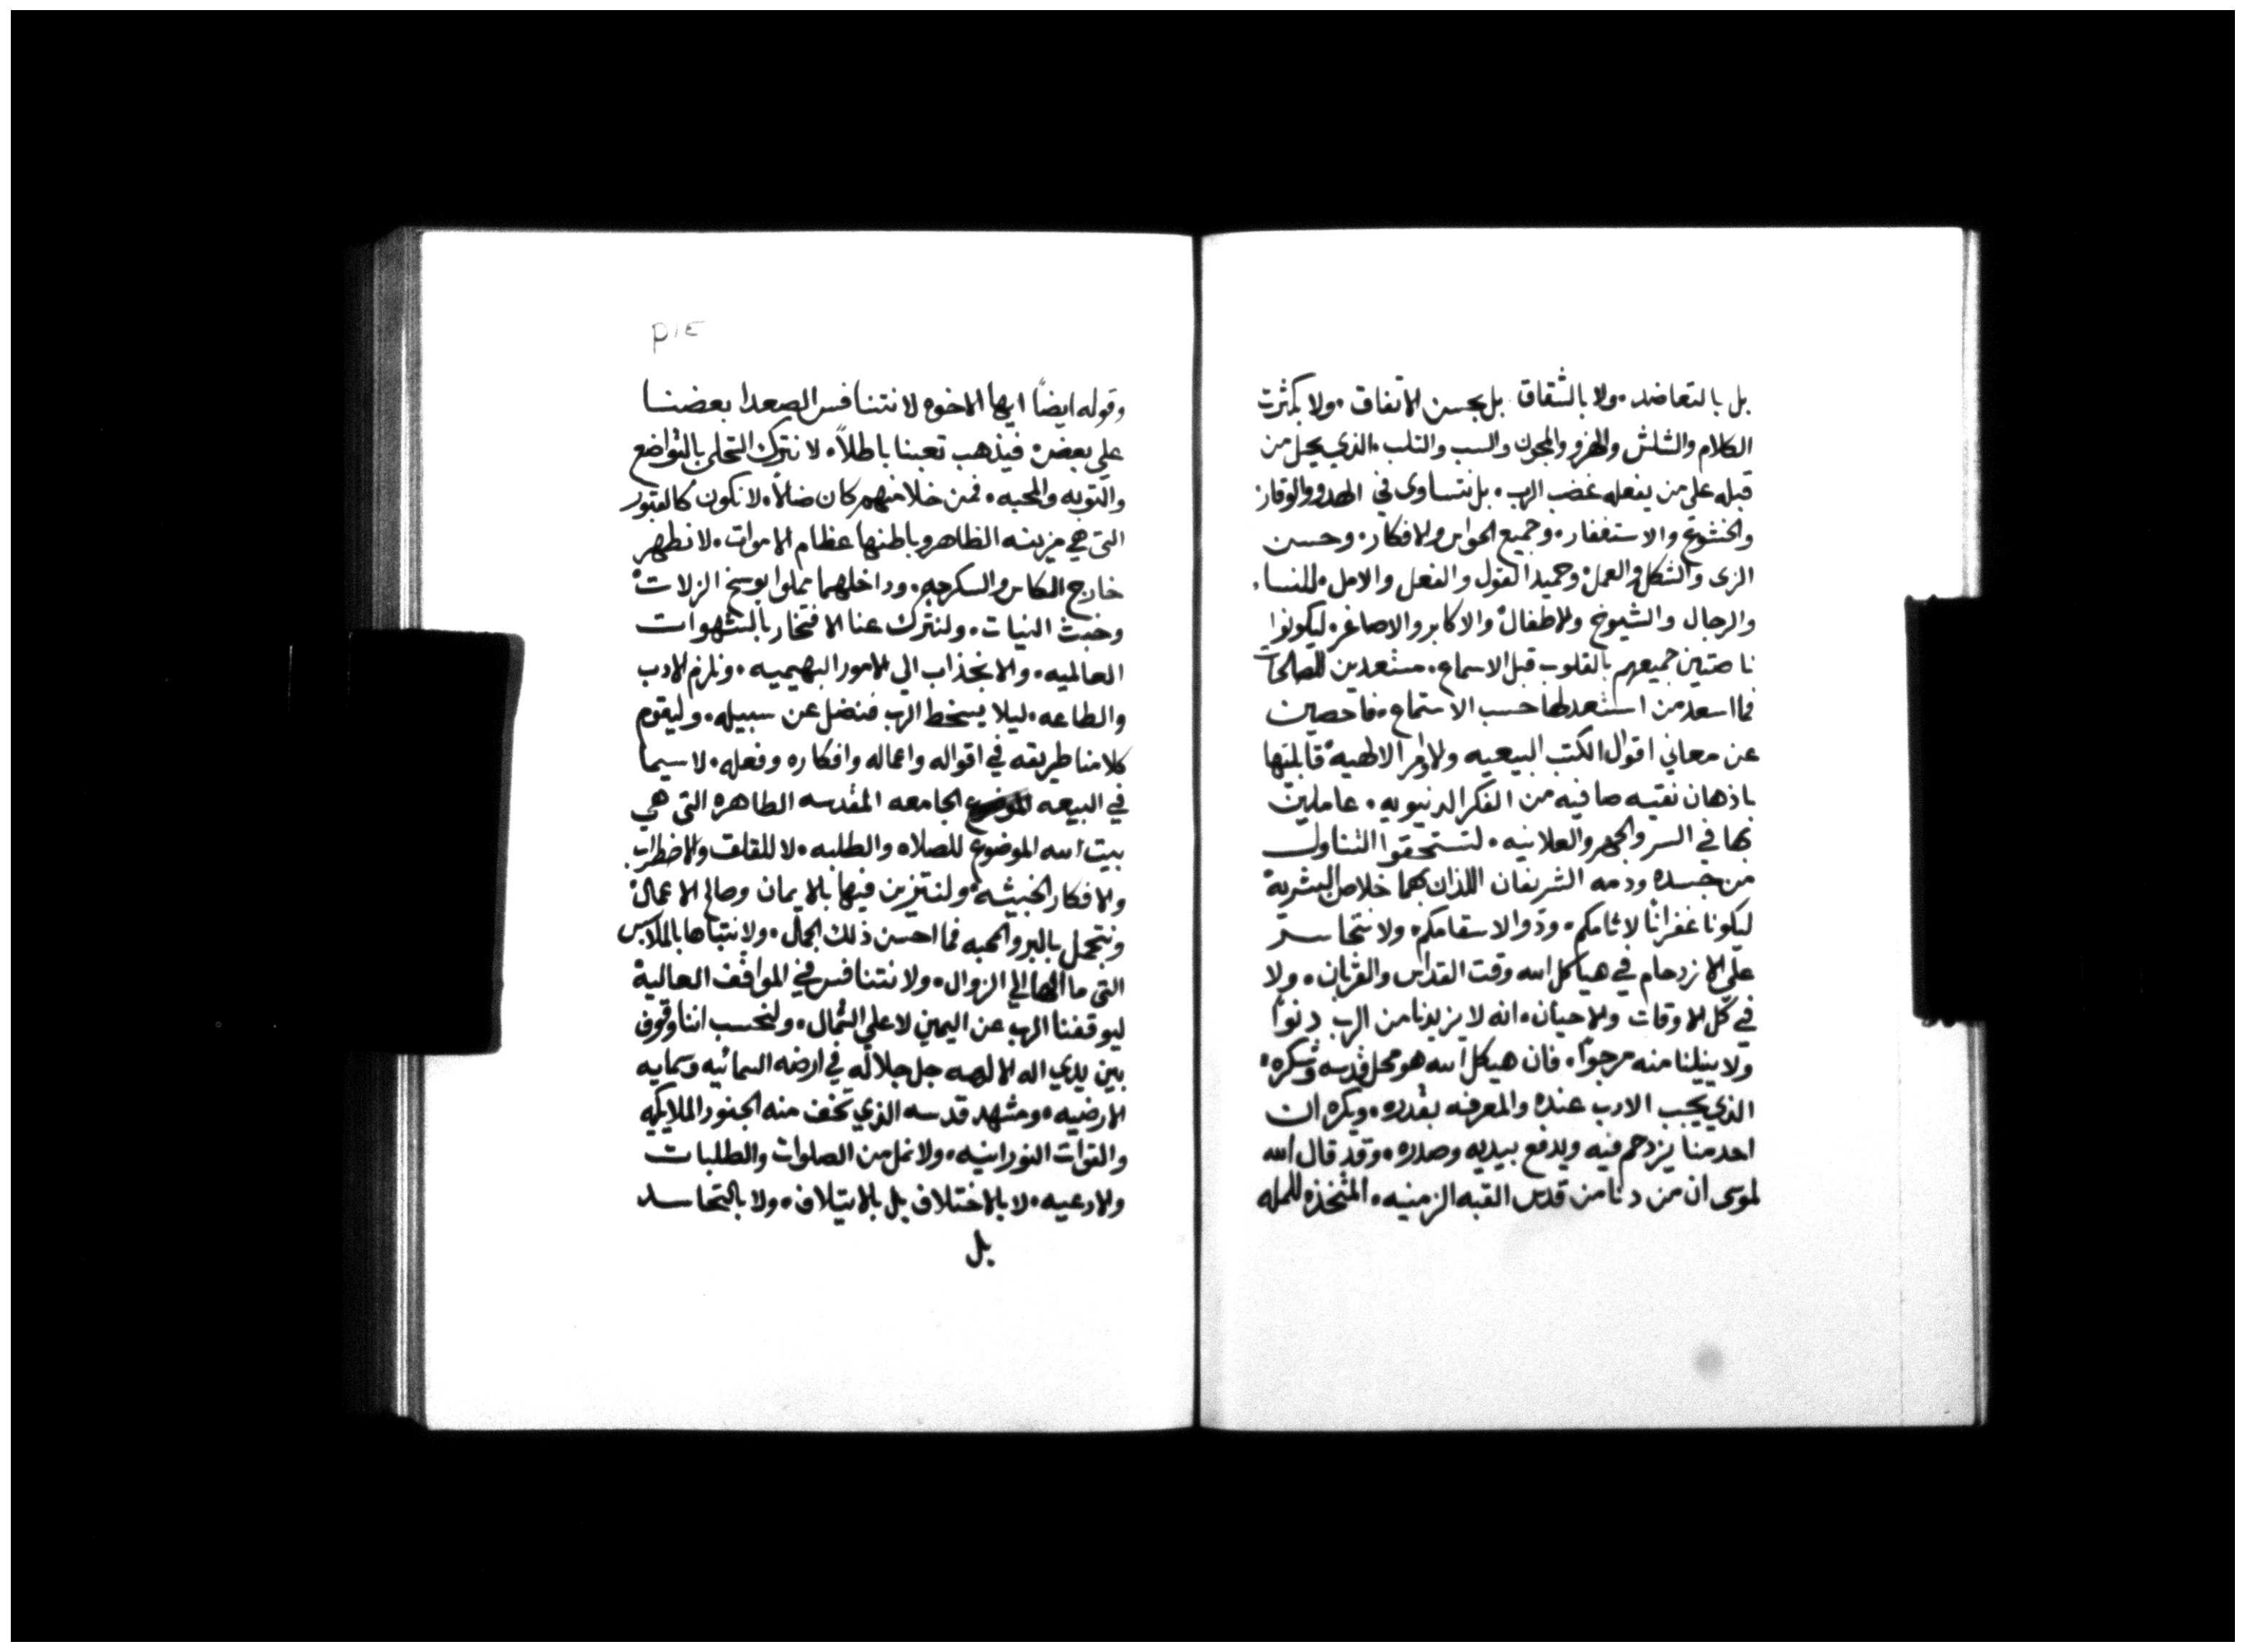 ٩١٤
وقوله ايضاً ايها الاخوه لا نتنافس الصعدا بعضنا
على بعض فيذهب تعبنا باطلاً لا نترك التحلى بالتواضع
والتوبه والمحبه فمن خلا منهم كان ضالاً لا نكون كالقبور
التى هى مزينه الظاهر وباطنها عظام الاموات لا نطهر
خارج الكاس والسكرجه وداخلهما مملوا بوسخ الزلات
وخبث النيات ولنترك عنا الافتخار بالشهوات
العالميه والانجذاب الى الامور البهيميه ونلزم الادب
والطاعه ليلا يسخط الرب فنضل عن سبيله وليقوم
كلامنا طريقه في اقواله واعماله وافكاره وفعله لا سيما
في البيعه الجامعه المقدسه الطاهره التى هي
بيت الله الموضوع للصلاه والطلبه لا للقلق والاضطراب
والافكار الخبيثه ولنتزين فيها بالايمان وصالح الاعمال
ونتجمل بالبر والمحبه فما احسن ذلك الجمال ولا نتباها بالملابس
التى ما الها الي الزوال ولا نتنافس في المواقف العاليه
ليوقفنا الرب عن اليمين لا على الشمال ولنحسب اننا وقوف
بين يدي اله الالهه جل جلاله في ارضه السمائيه وسمايه
الارضيه ومشهد قدسه الذي تخف منه الجنود الملايكيه
والقوات النورانيه ولا نمل من الصلوات والطلبات
والادعيه لا بالاختلاف بل بالايتلاف ولا بالتحاسد
بل
بل بالتعاضد ولا بالشقاق بل بحسن الاتفاق ولا بكثرت
الكلام والشلش والهزو والمجون والسب والتلب الذي يحل من
قبله على من يفعله غضب الرب بل نتساوى في الهدو والوقار
والخشوع والاستغفار وجميع الحواس والافكار وحسن
الزى والشكل والعمل وحميد القول والفعل والامل للنساء
والرجال والشيوخ والاطفال والاكابر والاصاغر ليكونوا
ناصتين جميعهم بالقلوب قبل الاسماع مستعدين للصالحات
فما اسعد من استعد لها حسب الاستماع فاحصين
عن معاني اقوال الكتب البيعيه والاوامر الالهيه قابلينها
باذهان نقيه صافيه من الفكر الدنيويه عاملين
بها في السر والجهر والعلانيه لتستحقوا التناول
من جسده ودمه الشريفان اللذان بهما خلاص البشرية
ليكونا غفراناً لاثامكم ودوا لاسقامكم ولا نتحاسد
على الازدحام في هياكل الله وقت القداس والقربان ولا
في كل الاوقات والاحيان انه لا يزيدنا من الرب دنواً
ولا ينيلنا منه مرجواً فان هيكل الله هو محل قدسه وشكره
الذي يجب الادب عنده والمعرفه بقدره ويكره ان
احد منا يزدحم فيه ويدفع بيديه وصدره وقد قال الله
لموسى ان من دنا من قدس القبه الزمنيه المتخذه للمله